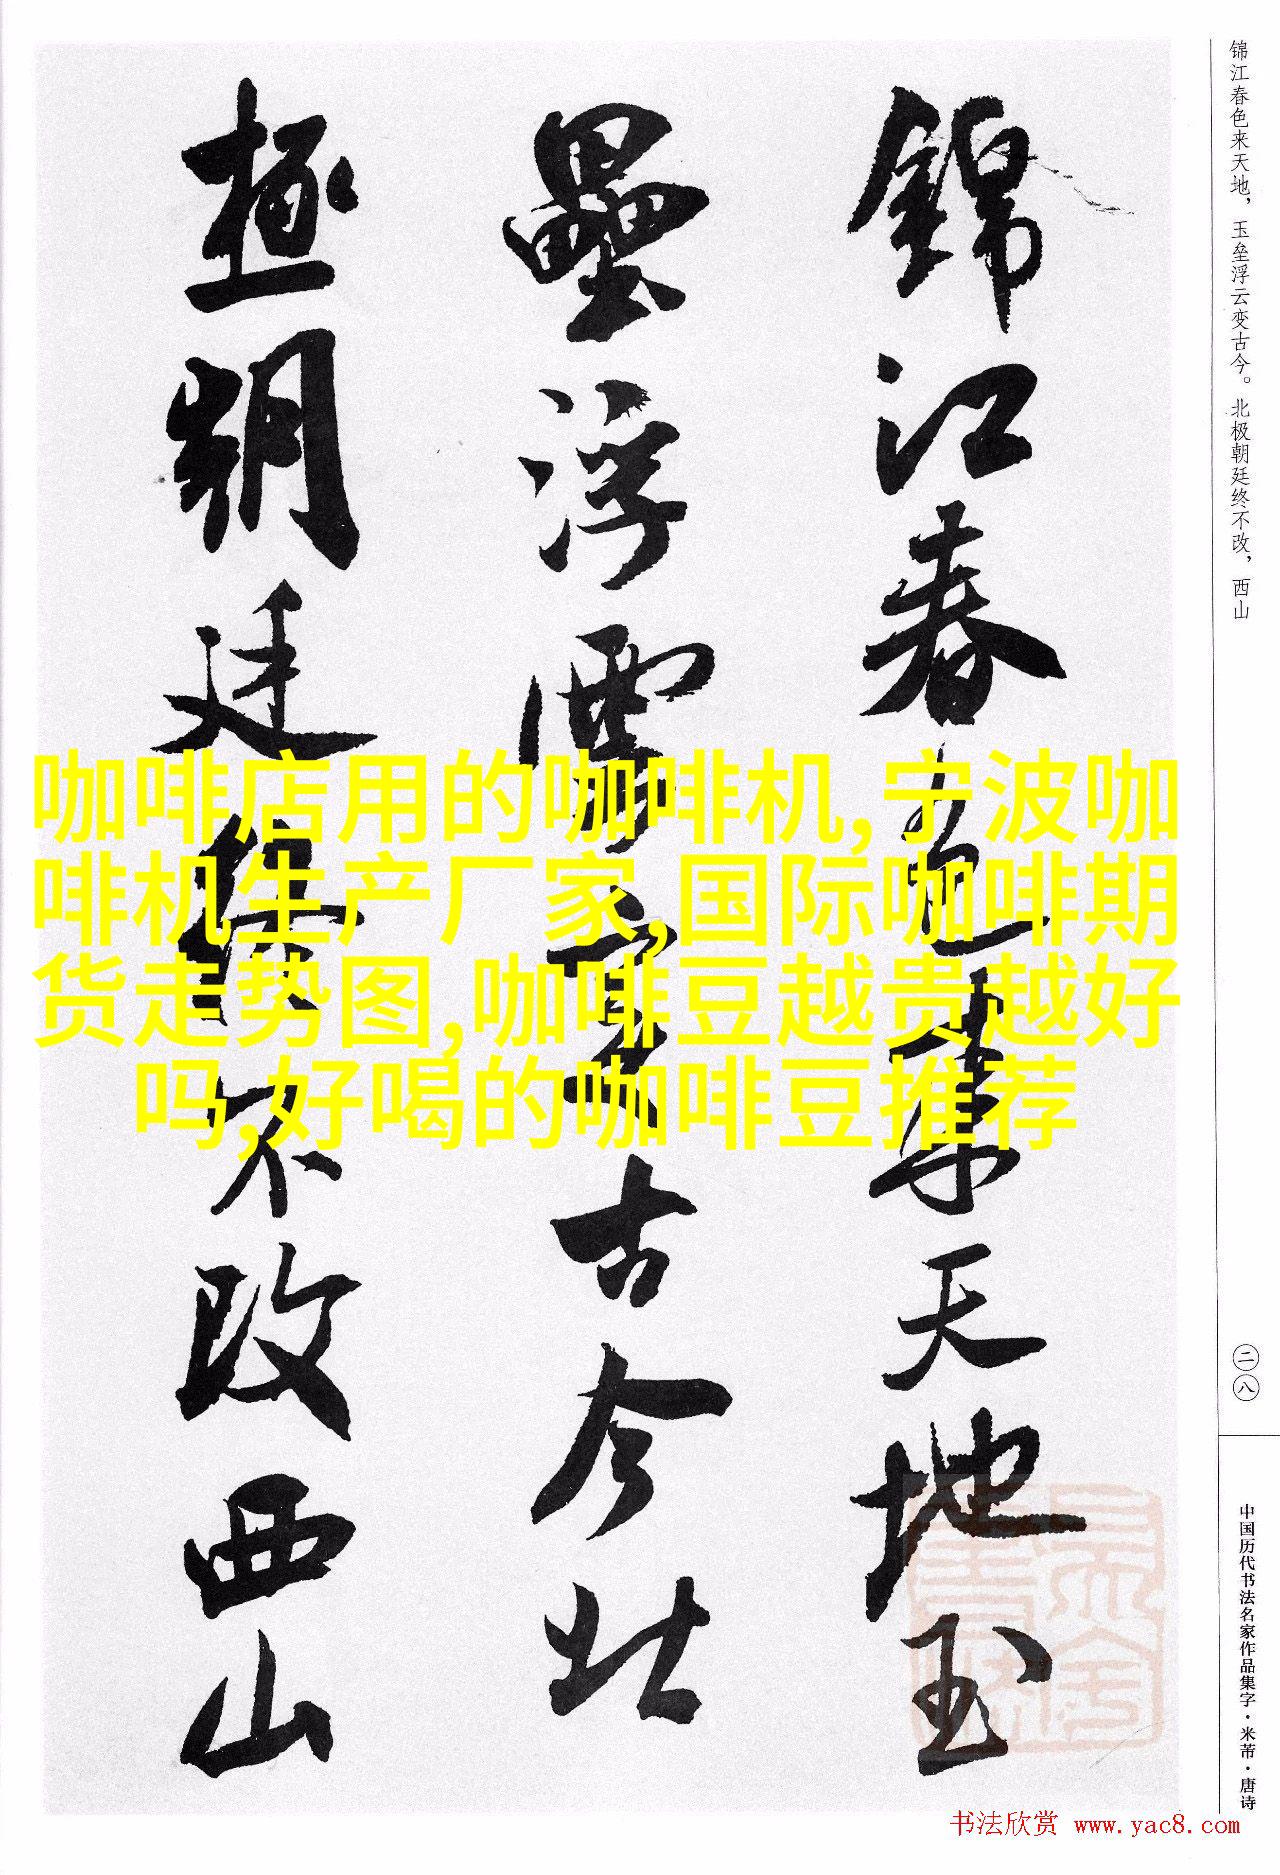 锦江春色来天地，玉垒浮云变古今。北极朝廷终不改，西山
錦江春色来天地玉
壘浮雲變古今北
極朝廷終不改西山
咖啡店用的咖啡机,宁波咖
啡机生产厂家,国际咖啡期
货走势图,咖啡豆越贵越好
吗,好喝的咖啡豆推荐
二八
中国历代书法名家作品集字·米芾·唐诗
书法欣赏 www.yac8.com